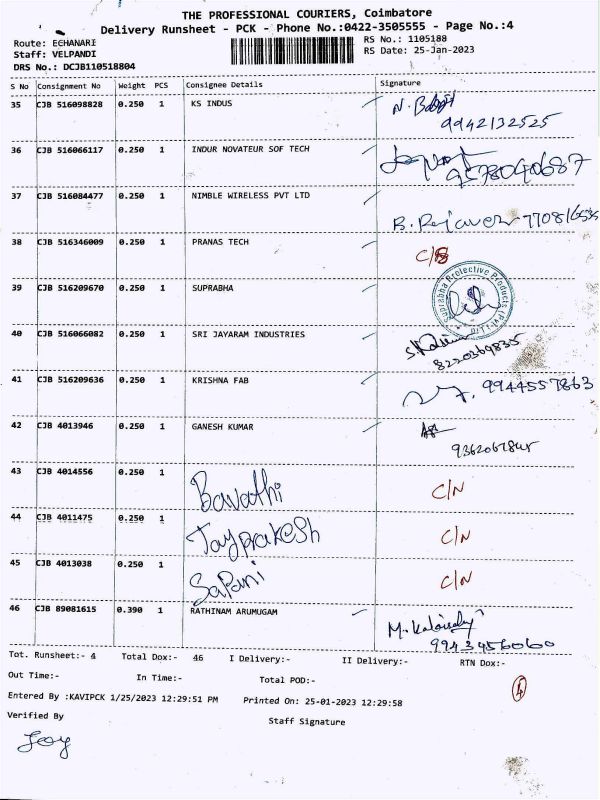 THE PROFESSIONAL COURIERS, Coimbatore
Delivery Runsheet - PCK - Phone No.:0422-3505555 - Page No.:4
Route: EEHANARI RS No.: 1105188
Staff: VELPANDI RS Date: 25-Jan-2023
DRS No.: DCJB110518804
S No Consignment No Weight PCS Consignee Details Signature
35 CJB 516098828 0.250 1 KS INDUS
9942132525
36 CJB 516066117 0.250 1 INDUR NOVATEUR SOF TECH
9578040687
37 CJB 516084477 0.250 1 NIMBLE WIRELESS PVT LTD
B. Rajaveer 770816535
38 CJB 516346009 0.250 1 PRANAS TECH
39 CJB 516209670 0.250 1 SUPRABHA
Suprabha Protective Products (P) Ltd
40 CJB 516066082 0.250 1 SRI JAYARAM INDUSTRIES
8220369835
41 CJB 516209636 0.250 1 KRISHNA FAB
9944557863
42 CJB 4013946 0.250 1 GANESH KUMAR
43 CJB 4014556 0.250 1 Bavathi C/N
44 CJB 4011475 0.250 1 Jayprakesh C/N
45 CJB 4013038 0.250 1 Sapani C/N
46 CJB 89081615 0.390 1 RATHINAM ARUMUGAM
9943456060
Tot. Runsheet:- 4 Total Dox:- 46 I Delivery:- II Delivery:- RTN Dox:-
Out Time:- In Time:- Total POD:- 4
Entered By :KAVIPCK 1/25/2023 12:29:51 PM Printed On: 25-01-2023 12:29:58
Verified By Staff Signature
Joy